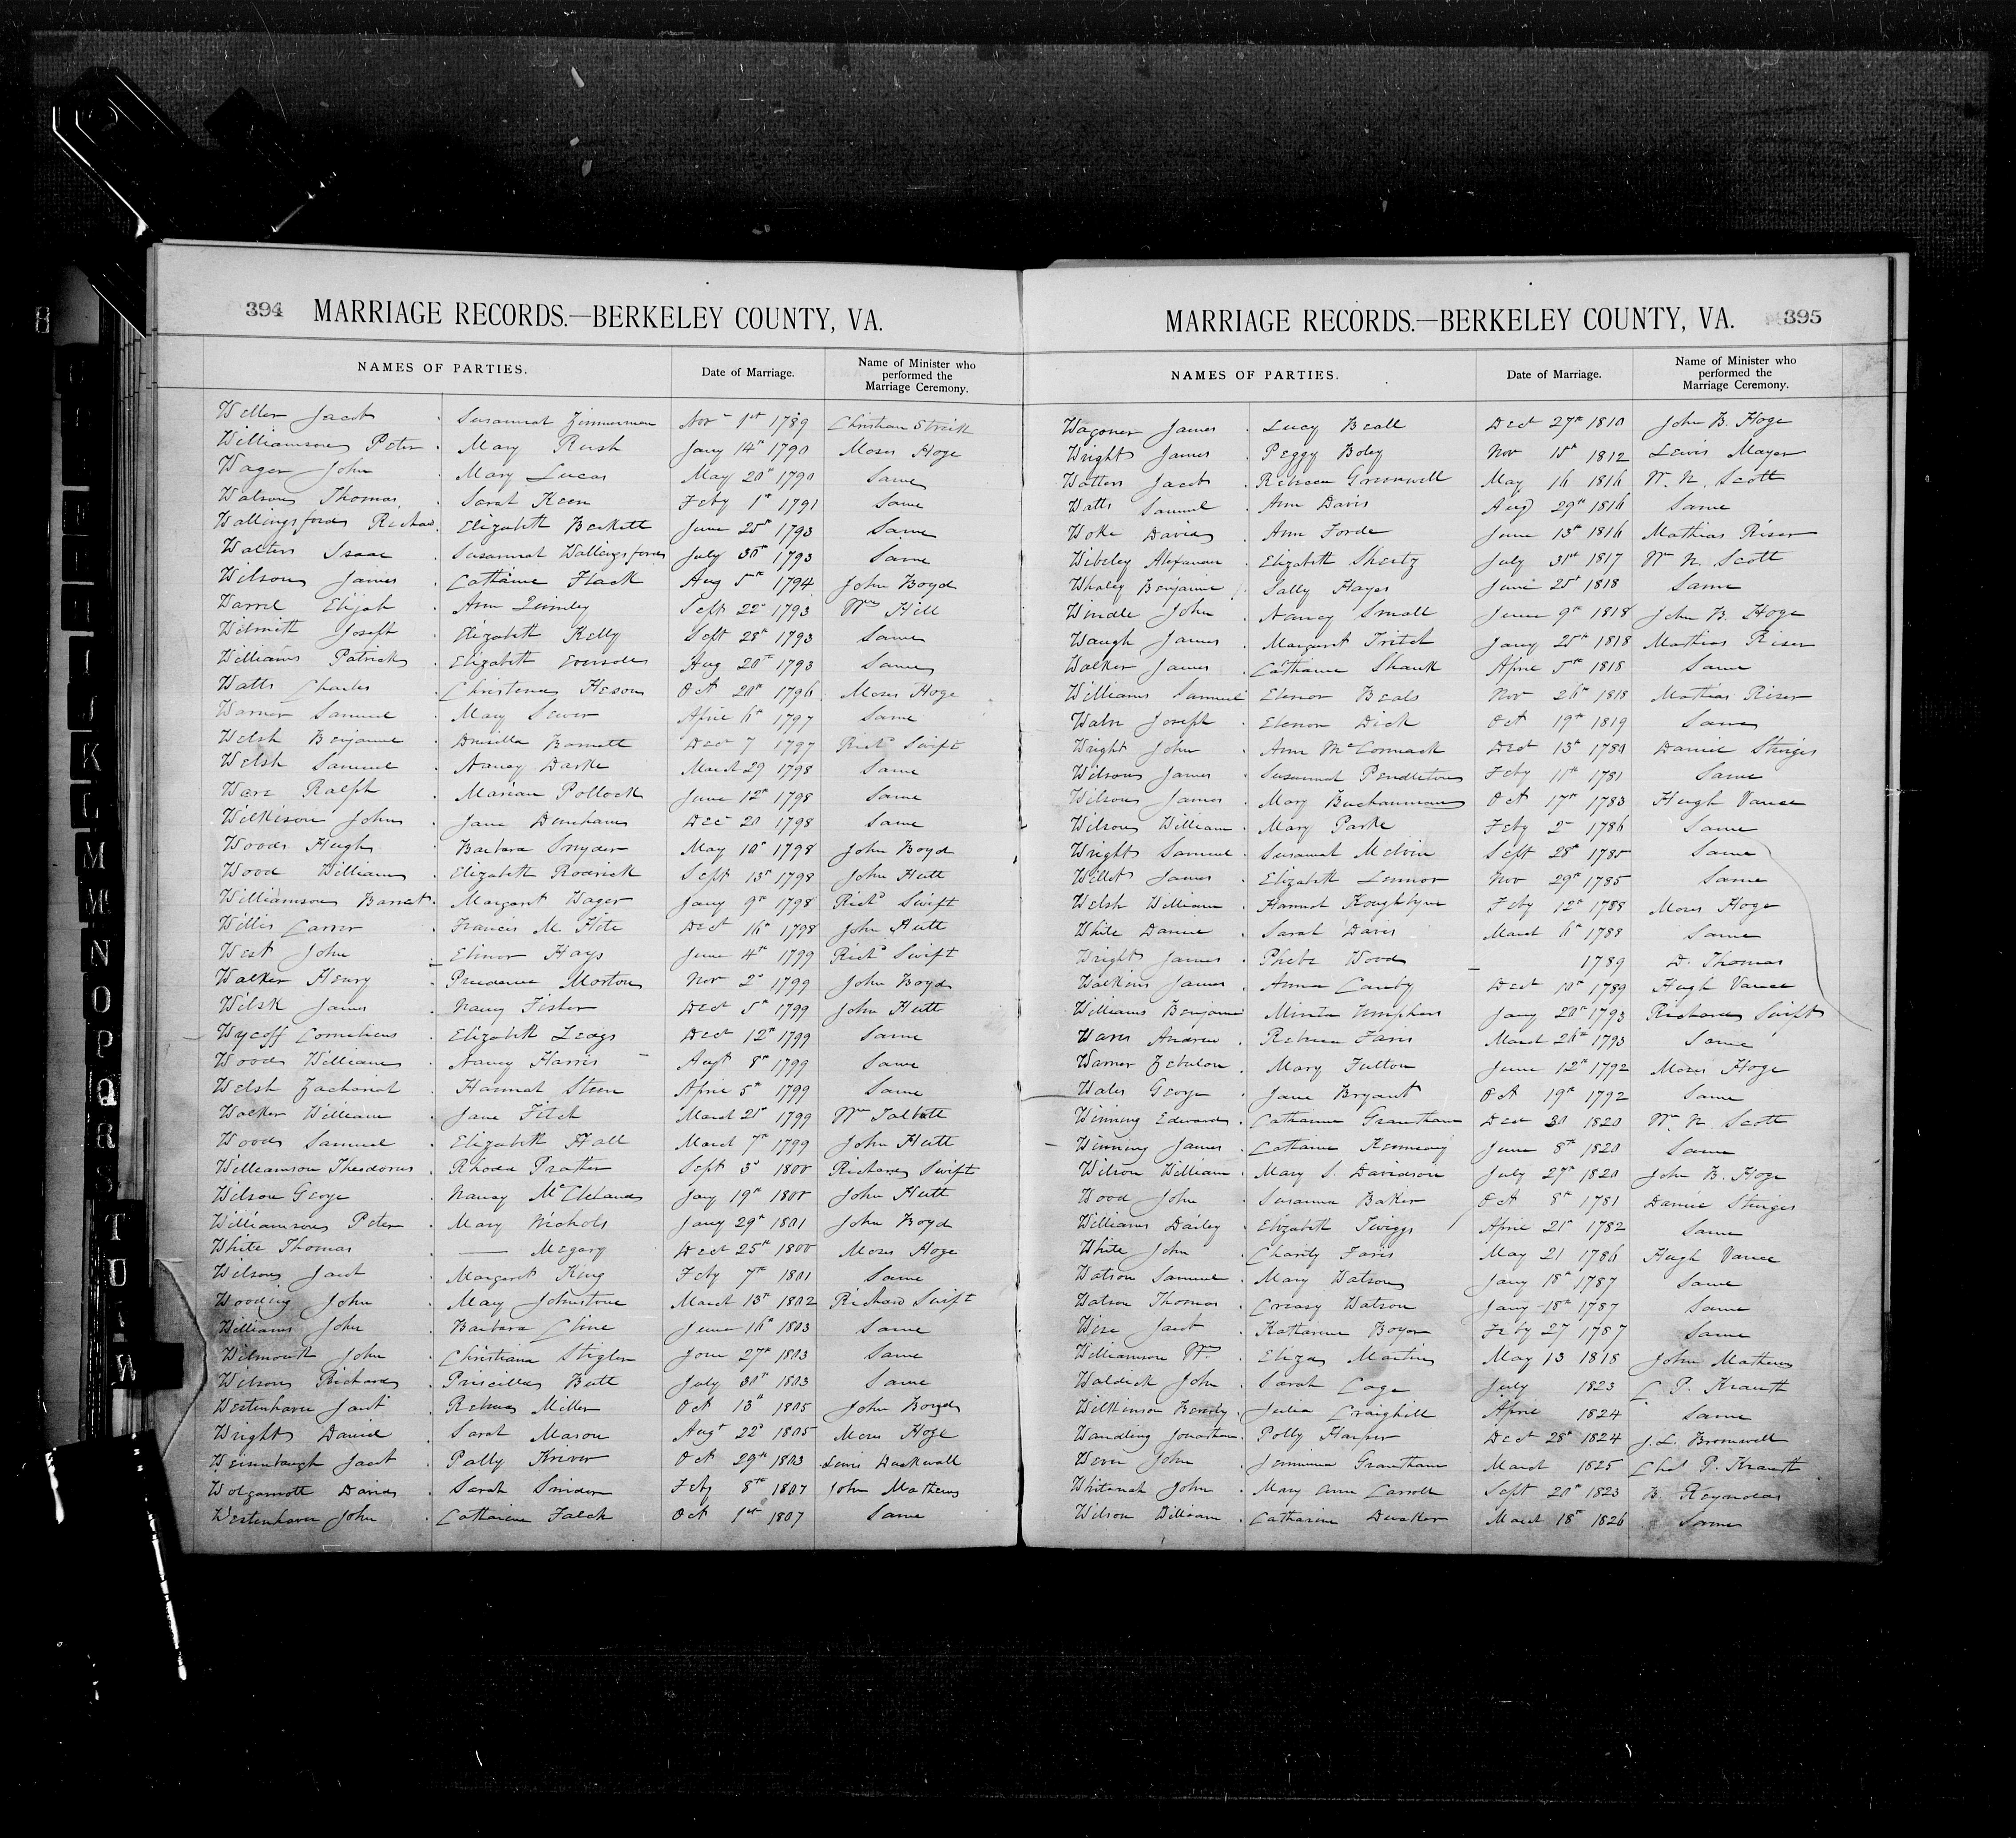 394 MARRIAGE RECORDS.—BERKELEY COUNTY, VA.
NAMES OF PARTIES. Date of Marriage. Name of Minister who performed the Marriage Ceremony.
Weller Jacob Susannah Zimmerman Nov 1st 1789 Christian Streit
Williamson Peter Mary Rush Jany 14th 1790 Moses Hoge
Wager John Mary Lucas May 20th 1790 Same
Watson Thomas Sarah Keen Feby 1st 1791 Same
Wallingsford Richard Elizabeth Beckett June 25th 1793 Same
Walters Isaac Susannah Wallingsford July 30th 1793 Same
Wilson James Catharine Flack Aug 5th 1794 John Boyd
Elijah Ann Sept 22d 1793 Wm Hill
Wilmith Joseph Elizabeth Kelly Sept 28th 1793 Same
Williams Patrick Elizabeth Aug 20th 1793 Same
Watts Charles Christena Oct 20th 1796 Moses Hoge
Warner Samuel Mary Sever April 6th 1797 Same
Welsh Benjamin Drusilla Barnett Dec 7 1797 Richd Swift
Welsh Samuel Nancy Darke March 29 1798 Same
Ware Ralph Marian Pollock June 12th 1798 Same
Wilkison John Jane Dunham Dec 20 1798 Same
Woods Hugh Barbara Snyder May 10th 1798 John Boyd
Wood William Elizabeth Rodrick Sept 13th 1798 John Hutt
Williamson Barnet Margaret Wager Jany 9th 1798 Richd Swift
Willis Carver Francis M. Hite Dec 16th 1798 John Hutt
West John Elinor Hays June 4th 1799 Richd Swift
Walker Henry Prudence Morton Nov 2d 1799 John Boyd
Welsh James Nancy Fisher Dec 5th 1799 John Hutt
Wycoff Cornelious Elizabeth Dec 12th 1799 Same
Woods William Nancy Harris Augt 8th 1799 Same
Welsh Zachariah Hannah Steen April 5th 1799 Same
Walker William Jane Fitch March 21st 1799 Wm Talbott
Woods Samuel Elizabeth Hall March 7th 1799 John Hutt
Williamson Theodorus Rhoda Prather Sept 3d 1800 Richard Swift
Wilson George Nancy McCleland Jany 19th 1800 John Hutt
Williamson Peter Mary Nichols Jany 29th 1801 John Boyd
White Thomas —— Megary Dec 25th 1800 Moses Hoge
Wilson Jacob Margaret King Feby 7th 1801 Same
Wooding John Mary Johnstone March 13th 1802 Richard Swift
Williams John Barbara Cline June 16th 1803 Same
Wilmouth John Christiana Stigler June 27th 1803 Same
Wilson Richard Priscilla Butt July 30th 1803 Same
Westenhaver Jacob Rebecca Miller Oct 13th 1805 John Boyd
Wright Daniel Sarah Mason Augt 22d 1805 Moses Hoge
Weisenbaugh Jacob Polly Kriver Oct 29th 1803 Lewis Duckwall
Wolgamott David Sarah Snider Feby 8th 1807 John Mathews
Westenhaver John Catharine Falck Oct 1st 1807 Same
MARRIAGE RECORDS.—BERKELEY COUNTY, VA. 395
NAMES OF PARTIES. Date of Marriage. Name of Minister who performed the Marriage Ceremony.
Wagoner James Lucy Beall Dec 27th 1810 John B. Hoge
Wright James Peggy Boley Nov 15th 1812 Lewis Mayer
Watters Jacob Rebecca Greenwell May 16 1816 W. N. Scott
Watts Samuel Ann Davis Aug 29th 1816 Same
Woke David Ann Forde June 13th 1816 Mathias Riser
Wibeley Alexander Elizabeth Sheetz July 31st 1817 Wm N. Scott
Whaley Benjamin Sally Hayes June 25th 1818 Same
Windle John Nancy Small June 9th 1818 John B. Hoge
Waugh James Margaret Tritch Jany 25th 1818 Mathias Riser
Walker James Catharine Shank April 5th 1818 Same
Williams Samuel Elenor Beals Nov 26th 1818 Mathias Riser
Joseph Elenor Dick Oct 19th 1819 Same
Wright John Ann McCormack Dec 13th 1780 Daniel Sturges
Wilson James Susannah Pendleton Feby 11th 1781 Same
Wilson James Mary Buchannan Oct 17th 1783 Hugh Vance
Wilson William Mary Park Feby 2d 1786 Same
Wright Samuel Susannah Melvin Sept 28th 1785 Same
Willet James Elizabeth Lemmor Nov 29th 1785 Same
Welsh William Hannah Feby 12th 1788 Moses Hoge
White Daniel Sarah Davis March 6th 1788 Same
Wright James Phebe Wood — 1789 D. Thomas
Watkins James Anna Canby Dec 10th 1789 Hugh Vance
Williams Benjamin Minta Umphers Jany 20th 1793 Richard Swift
Andrew Rebecca Faris March 26th 1793 Same
Warner Zebulon Mary Fulton June 12th 1792 Moses Hoge
Wales George Jane Bryant Oct 19th 1792 Same
Winning Edward Catharine Grantham Dec 30 1820 W. N. Scott
Winning James Catharine Kennedy June 8th 1820 Same
Wilson William Mary S. Davidson July 27th 1820 John B. Hoge
Wood John Susanna Baker Oct 8th 1781 Daniel Sturges
Williams Dailey Elizabeth Twiggs April 21st 1782 Same
White John Charity Faris May 21 1786 Hugh Vance
Watson Samuel Mary Watson Jany 18th 1787 Same
Watson Thomas Creasy Watson Jany 18th 1787 Same
Wise Jacob Katharine Boyer Feby 27 1787 Same
Williamson Wm Eliza Martin May 13 1818 John Mathews
Waldeck John Sarah Cage July 1823 C. P. Krauth
Wilkinson Beverly Julia Craighill April 1824 Same
Wandling Jonathan Polly Harper Dec 28th 1824 J. L. Bromwell
Wever John Jemimia Grantham March 1825 Chas P. Krauth
Whitenah John Mary Ann Carroll Sept 20th 1823 B. Reynolds
Wilson William Catharine March 18th 1826 Same